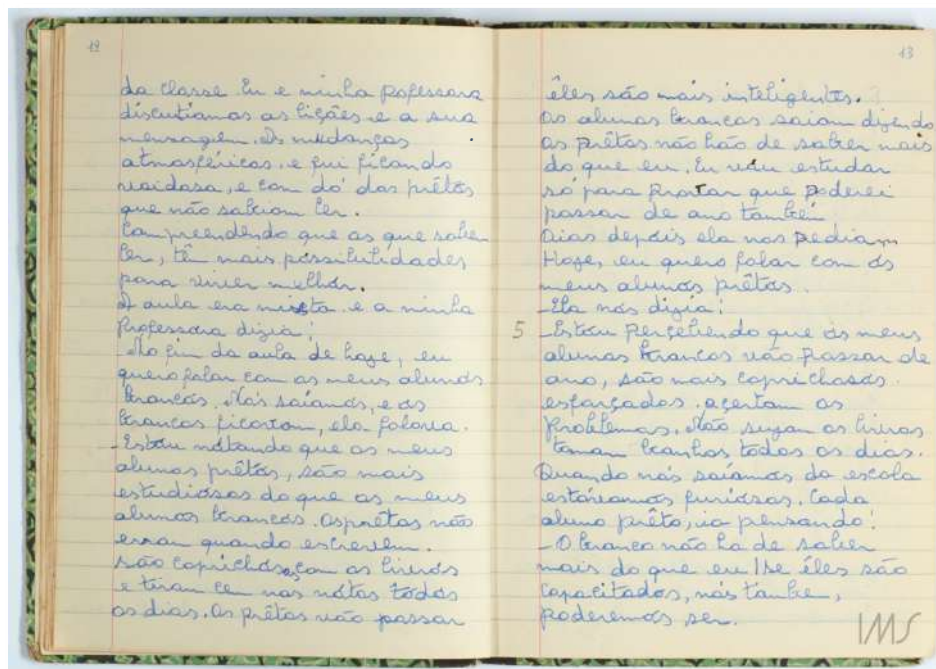 12
da classe. Eu e minha pofessora
discutiamos as lições e a sua
mensagem. As mudanças
atmosféricas. e fui ficando
vaidosa, e com dó dos prêtos
que não sabiam ler.
Compreendendo que os que sabem
ler, tê mais possibilidades
para viver melhor.
A aula era mixta e a minha
Professora dizia:
-No fim da aula de hoje, eu
quero falar com os meus alunos
brancos. Nós saíamos, e os
brancos ficavam, ela falava.
-Estou nótando que os meus
alunos prêtos, são mais
estudiósos do que os meus
alunos brancos. Os prêtos não
erram quando escrevem.
São caprichósos com os livros
e tiram cem nas nótas todos
os dias. Os prêtos vão passar
13
êles são mais inteligentes.
Os alunos brancos saiam dizendo
os prêtos não hão de saber mais
do que eu. Eu vou estudar
só para provar que poderei
passar de ano também
Dias depois ela nos pedia
Hoje, eu quero falar com os
meus alunos prêtos.
-Ela nos dizia:
5 -Estou percebendo que os meus
alunos brancos vão passar de
ano, são mais caprichosos.
esforçados. açertam os
problemas. Não sujam os livros
tomam banhos todos os dias.
Quando nós saíamos da escola
estávamos furiósos. Cada
aluno prêto, ia pensando:
-O branco não ha de saber
mais do que eu! se êles são
capacitados, nós tambe,
poderemos ser.
IMS